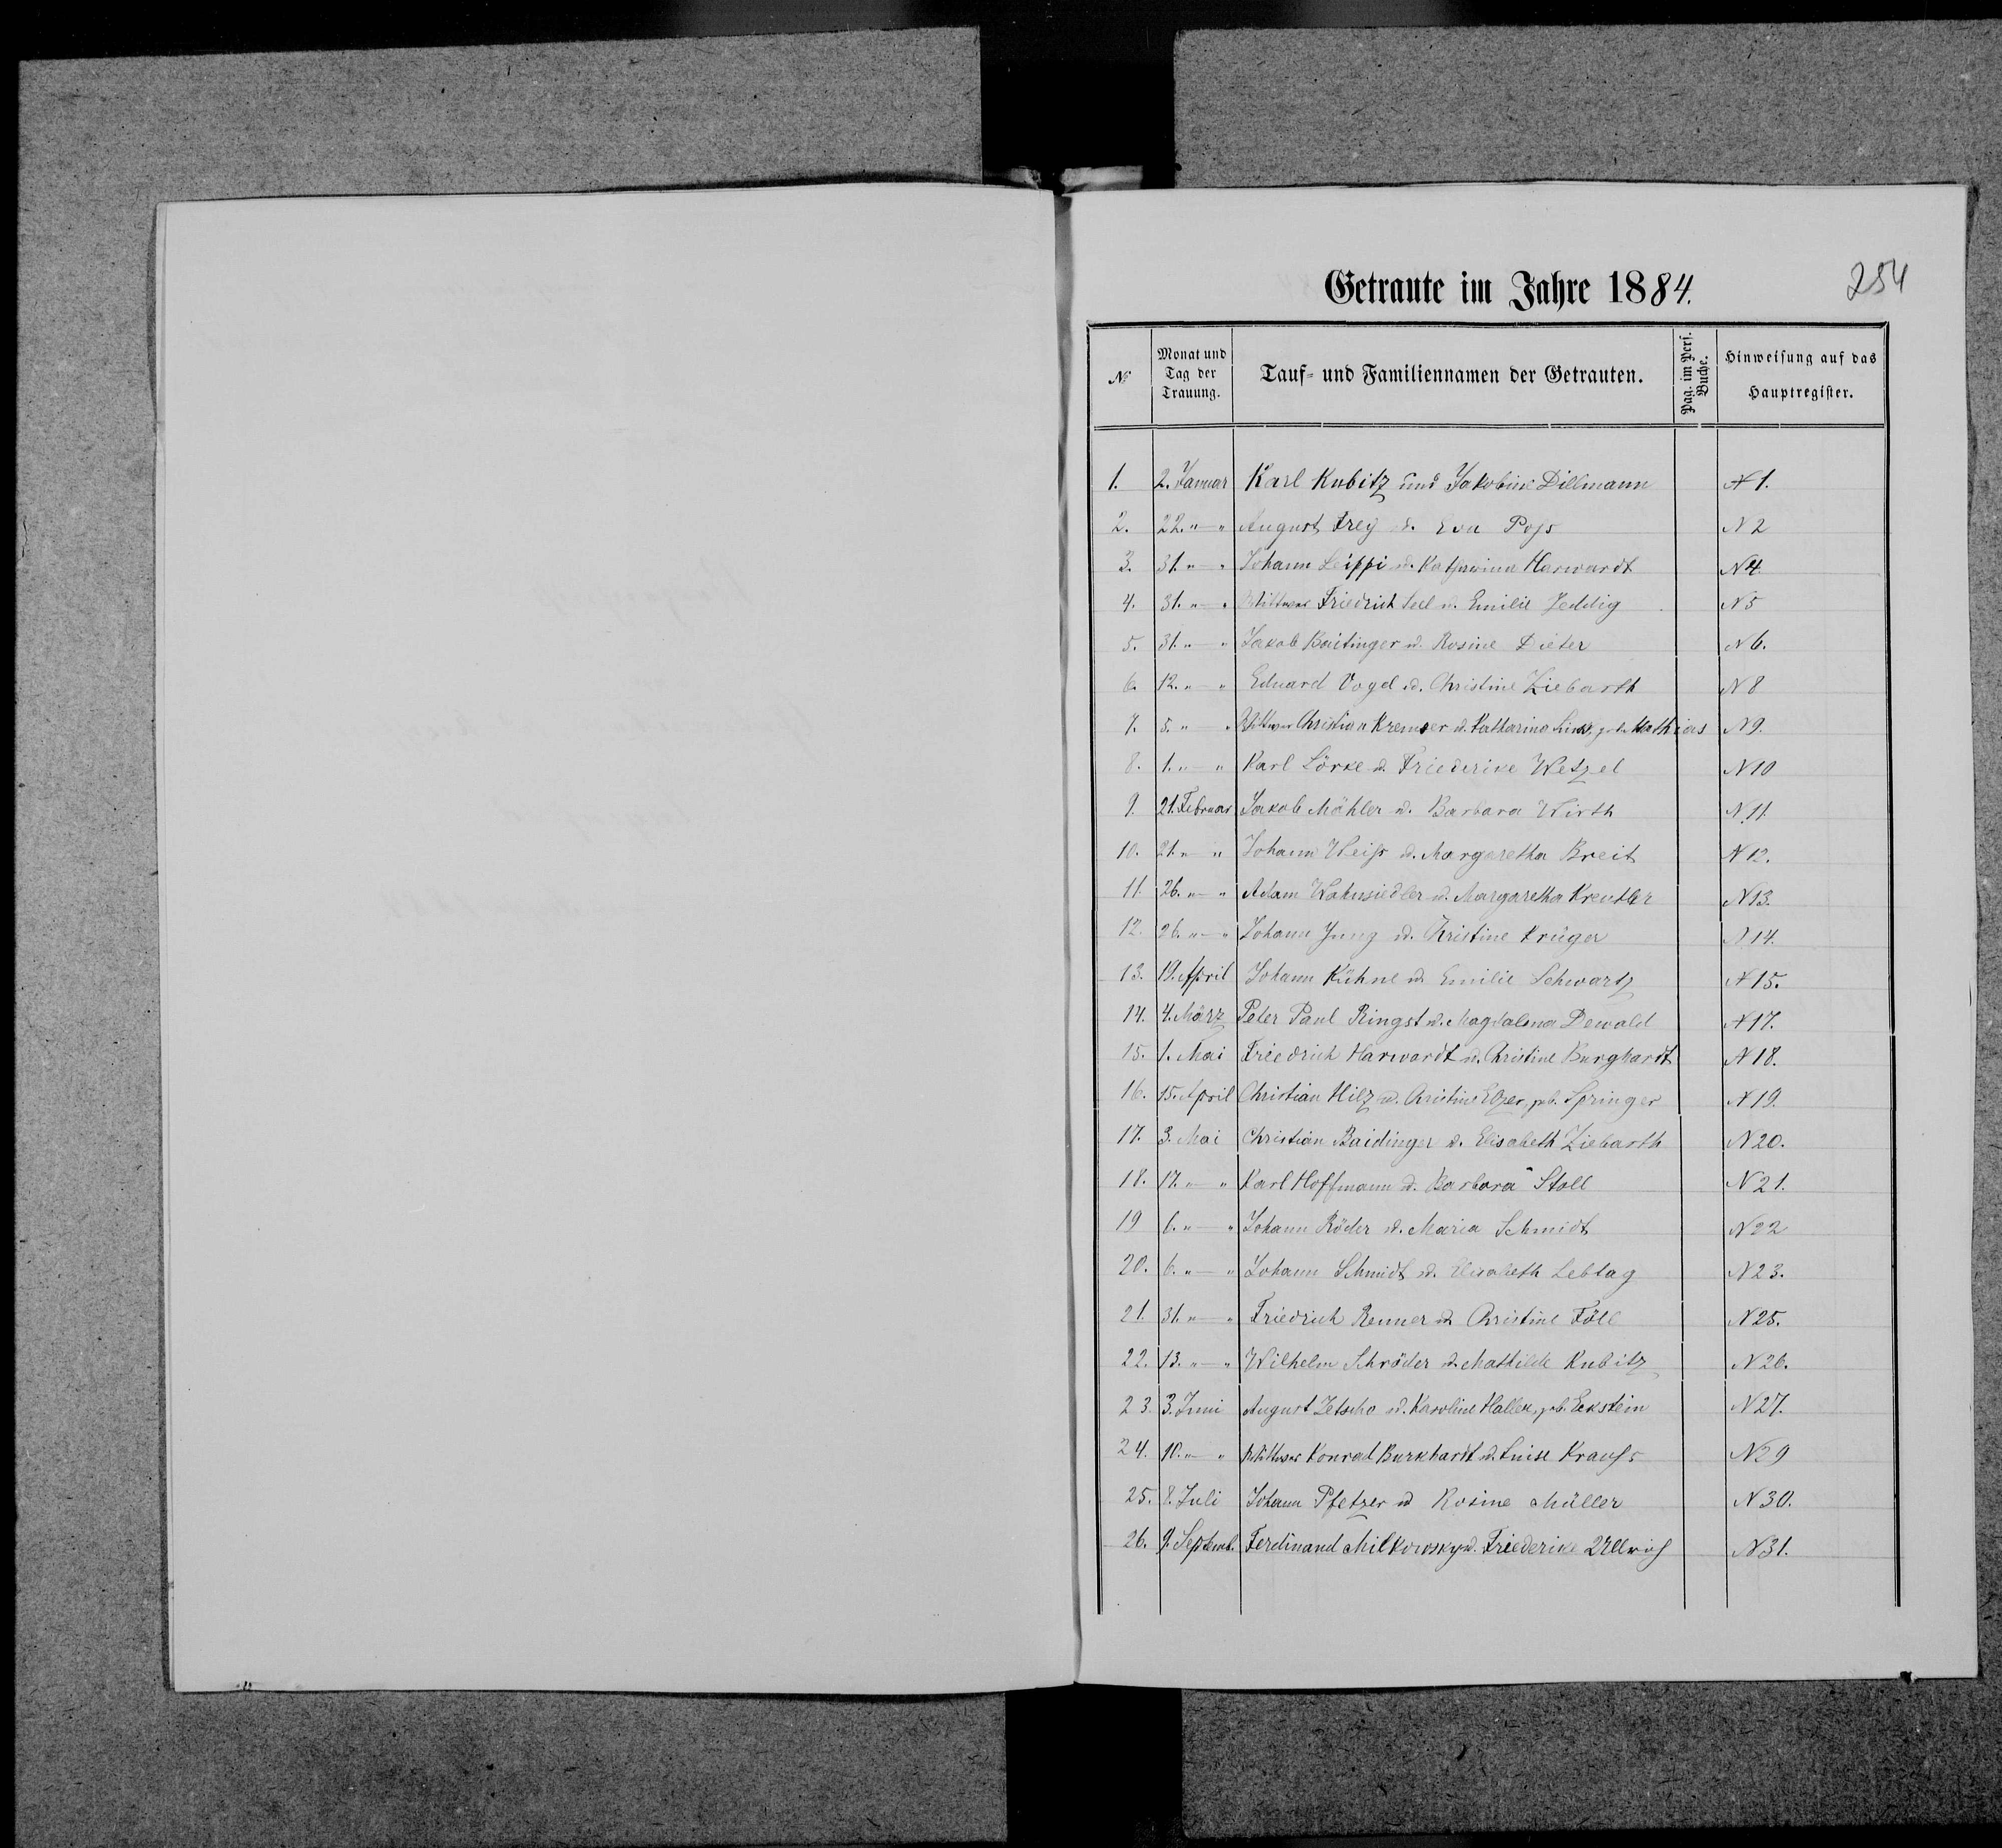 Getraute im Jahre 1884.
254
№ Monat und Tag der Trauung. Tauf- und Familiennamen der Getrauten. Pag. im Pers. Buche. Hinweisung auf das Hauptregister.
1. 2. Januar Karl Kubitz und Jakobine Dillmann N 1.
2. 22. " — " August Frey u. Eva Pojs N 2
3. 31. " — " Johann Leippi u. Katharina Harwardt N 4.
4. 31. " — " Wittwer Friedrich Seel u. Emilie Jeddig N 5
5. 31. " — " Jakob Baitinger u. Rosine Dieter N 6.
6. 12. " — " Eduard Vogel u. Christine Ziebarth N 8
7. 5. " — " Wittwer Christian Kremser u. Katharina geb. Mathias N 9.
8. 1. " — " Karl Lörke u. Friederike Wetzel N 10
9. 21. Februar Jakob Mähler u. Barbara Wirth N 11.
10. 21. " — " Johann Weiß u. Margaretha Breit N 12.
11 26. " — " Adam Wahnsiedler u. Margaretha Kreutler N 13.
12. 26. " — " Johann Jung u. Christine Krüger N 14.
13. 19. April Johann Kühne u. Emilie Schwartz N 15.
14. 4. März Peter Paul Ringst u. Magdalena Dewald N 17.
15. 1. Mai Friedrich Harwardt u. Christine Burghardt N 18.
16. 15. April Christian Hilz u. Christine Elzer, geb. Springer N 19.
17. 3. Mai Christian Baidinger u. Elisabeth Ziebarth N 20.
18. 17. " — " Karl Hoffmann u. Barbara Stoll N 21.
19 6. " — " Johann Röder u. Maria Schmidt N 22
20. 6. " — " Johann Schmidt u. Elisabeth Lebtag N 23.
21. 31. " — " Friedrich Renner u. Christine Föll N 25.
22. 13. " — " Wilhelm Schröder u. Mathilde Kubitz N 26.
23. 3. Juni August Zetscho u. Karoline Haller, geb. Eckstein N 27.
24. 10. " — " Wittwer Konrad Burkhardt u. Luise Krauß N 29
25. 8. Juli Johann Pfetzer u. Rosine Müller N 30.
26. 9. Septemb. Ferdinand Milkowsky u. Friederike Ullrich N 31.